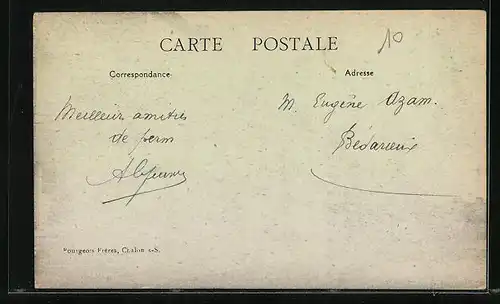 10
CARTE POSTALE
Correspondance
Adresse
Meilleurs amitiés
de
M. Eugène Azam.
Bédarieux
Bourgeois Frères, Chalon s-S.